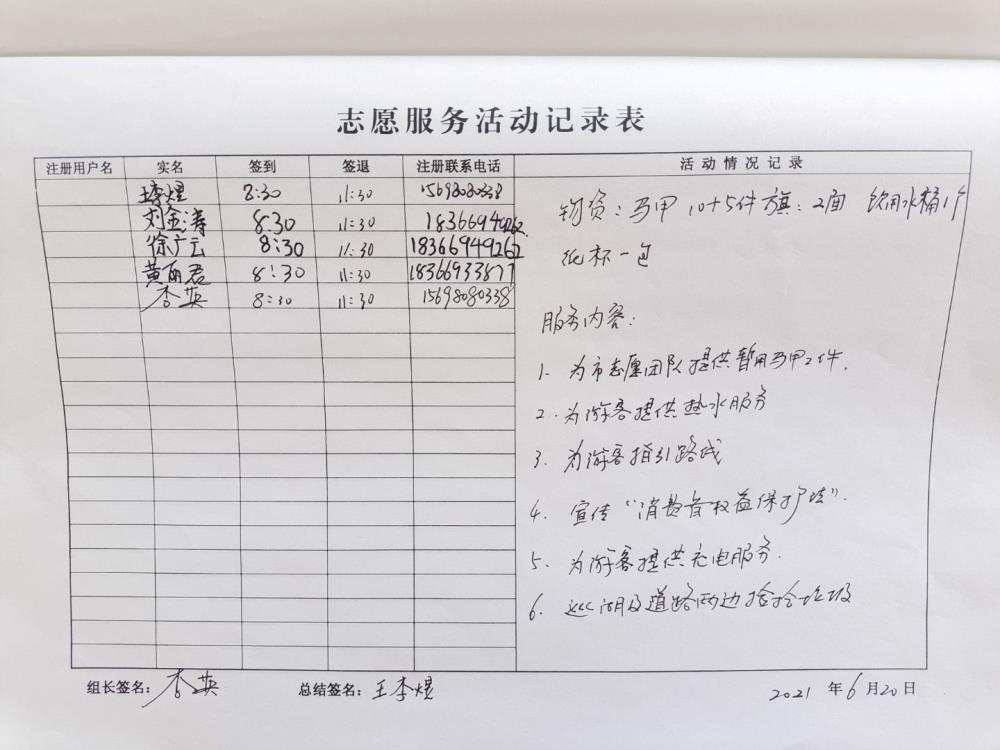 志愿服务活动记录表
注册用户名 实名 签到 签退 注册联系电话 活动情况记录
王李煜 8:30 11:30 15698080338
刘金涛 8:30 11:30 18366949262
徐广云 8:30 11:30 18366949262
黄雨君 8:30 11:30 18366933877
李英 8:30 11:30 15698080338
物资:马甲10+5件 旗:2面 饮用水桶1个
纸杯一包
服务内容:
1. 为市志愿团队提供暂用马甲2件.
2. 为游客提供热水服务
3. 为游客指引路线
4. 宣传“消费者权益保护法”.
5. 为游客提供充电服务.
6. 巡湖及道路两边捡拾垃圾
组长签名:李英 总结签名:王李煜 2021年6月20日